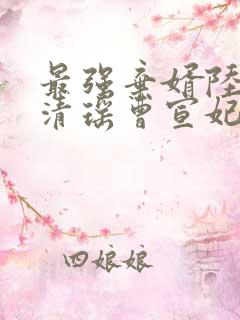 最强弃婿陆
清瑶曹宣妃
四娘娘